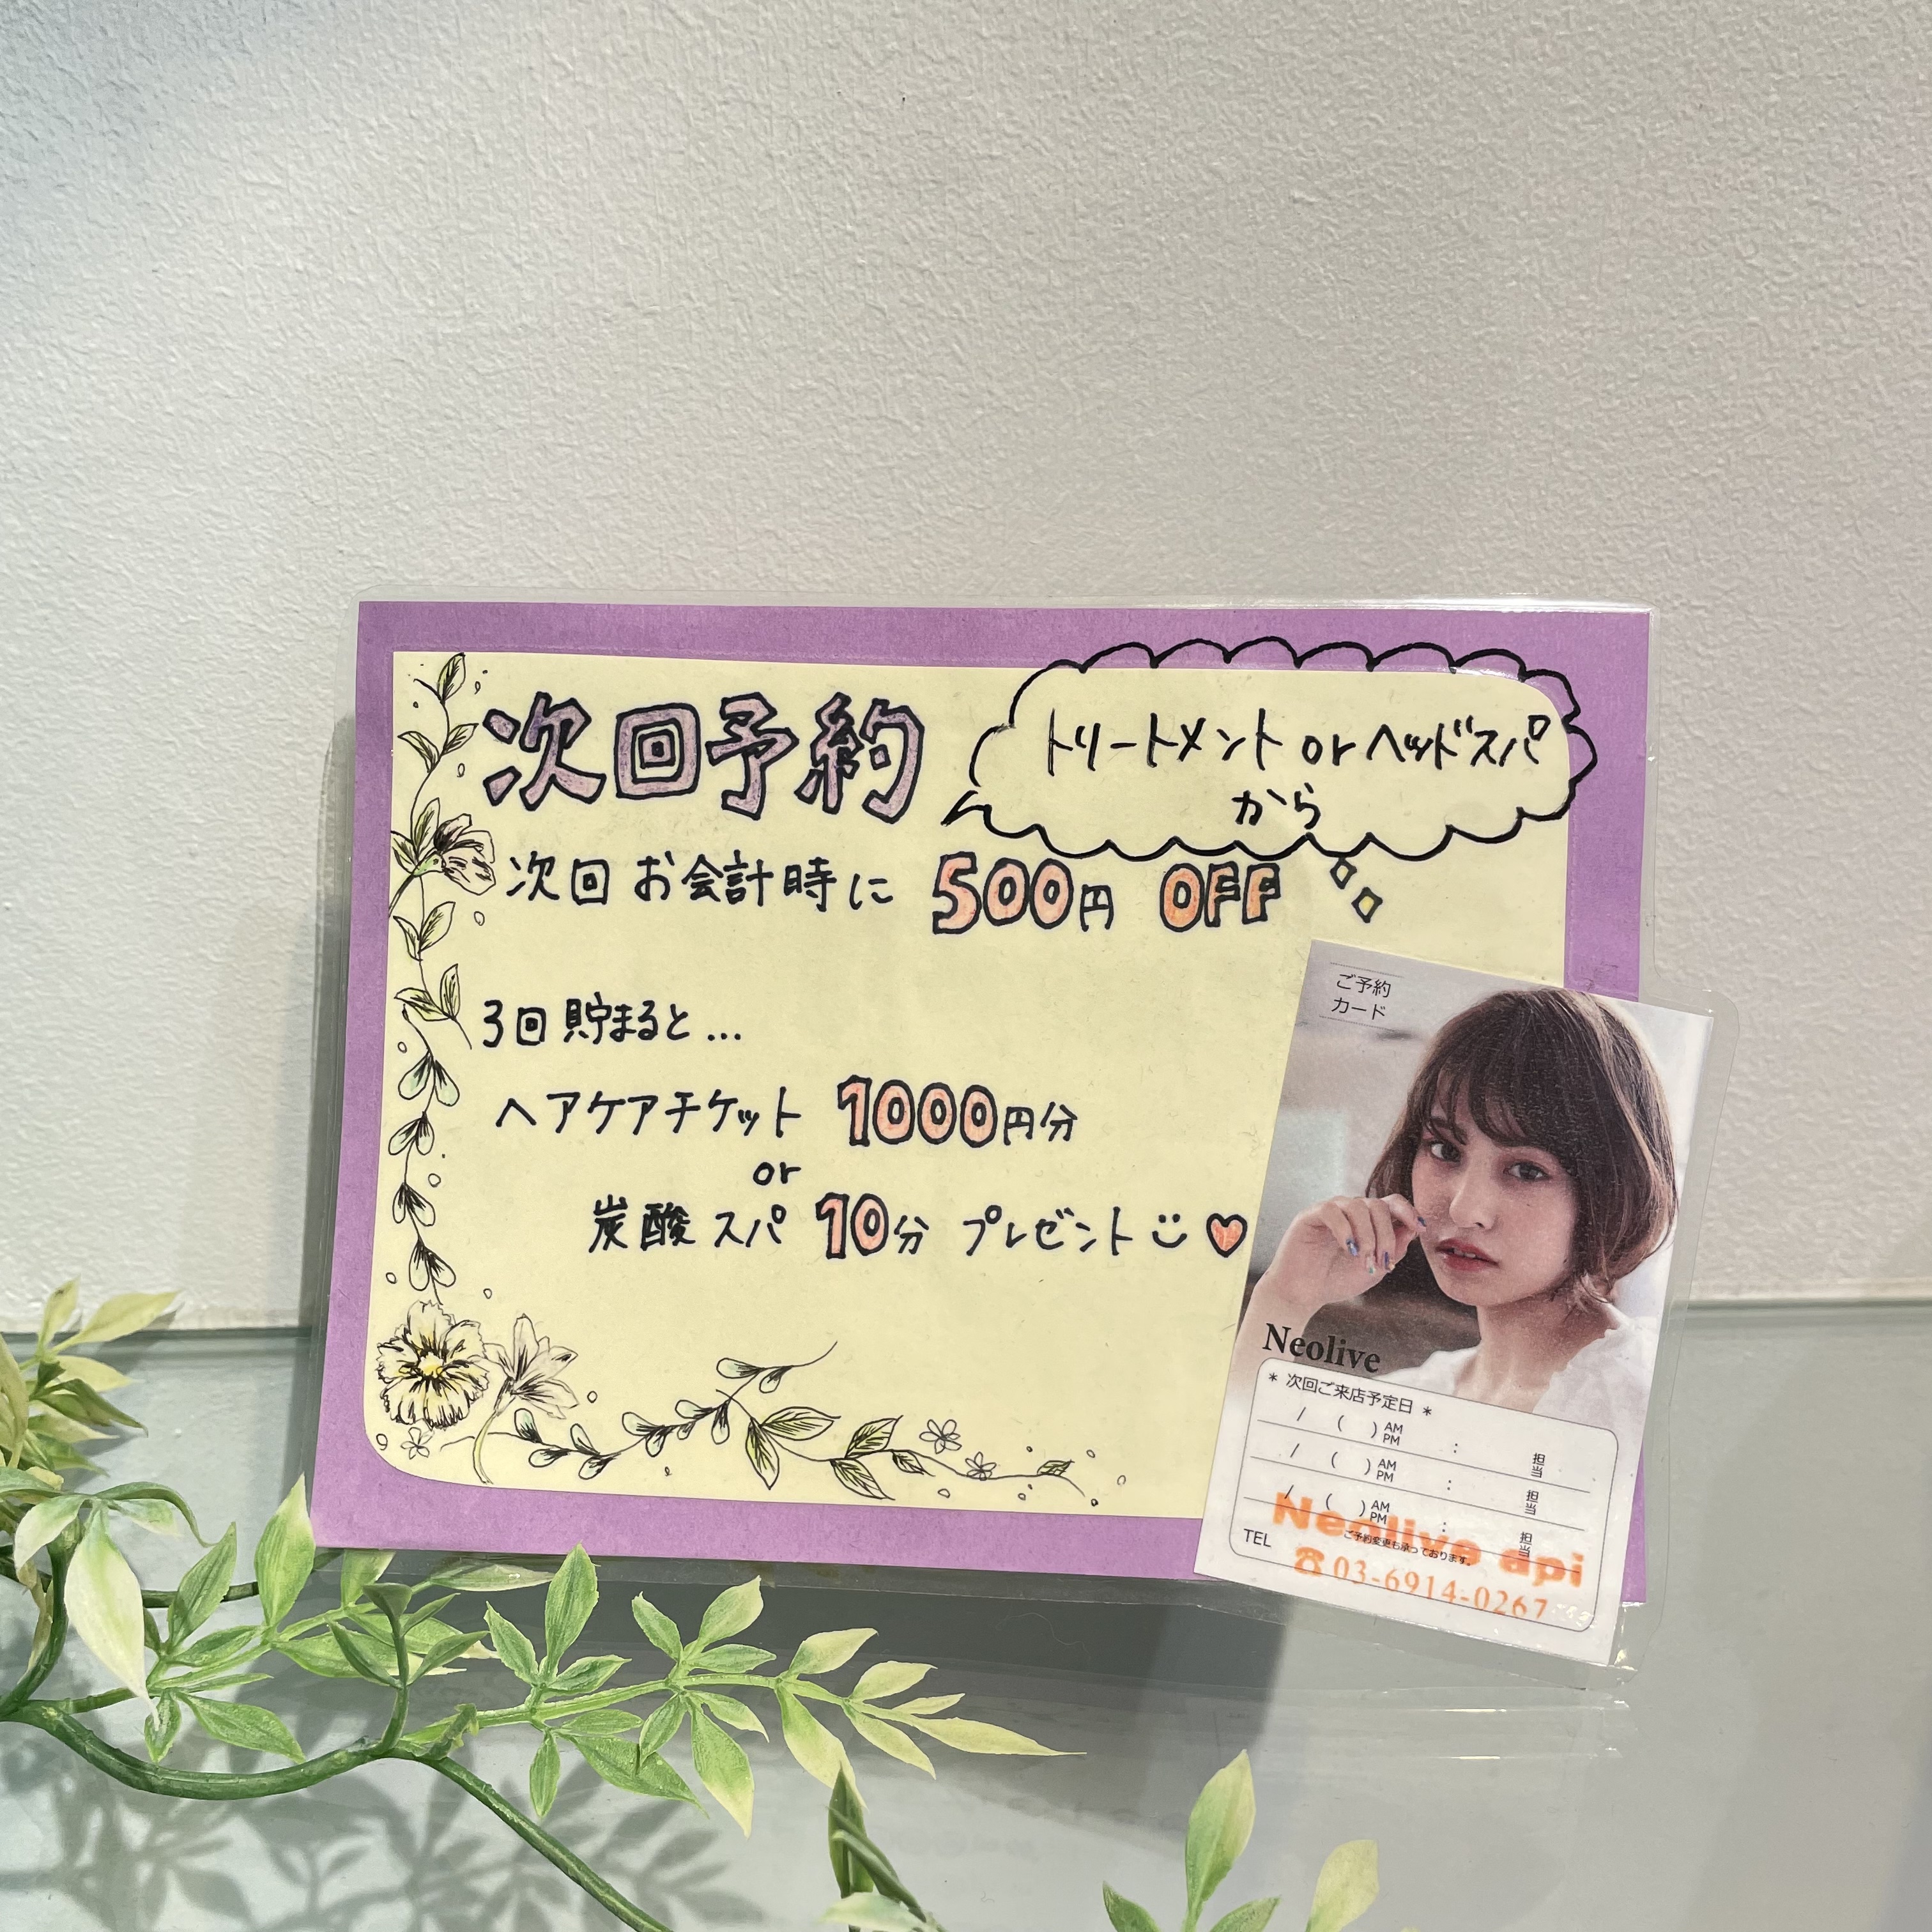 次回予約
トリートメント or ヘッドスパ
から
次回 お会計時に 500円 OFF
3回 貯まると...
ヘアケアチケット 1000円分
or
炭酸スパ 10分 プレゼント
ご予約
カード
Neolive
* 次回ご来店予定日 *
/ ( ) AM PM : 担当
/ ( ) AM PM : 担当
/ ( ) AM PM : 担当
Neolive api
TEL ご予約変更も承っております。
☎03-6914-0267